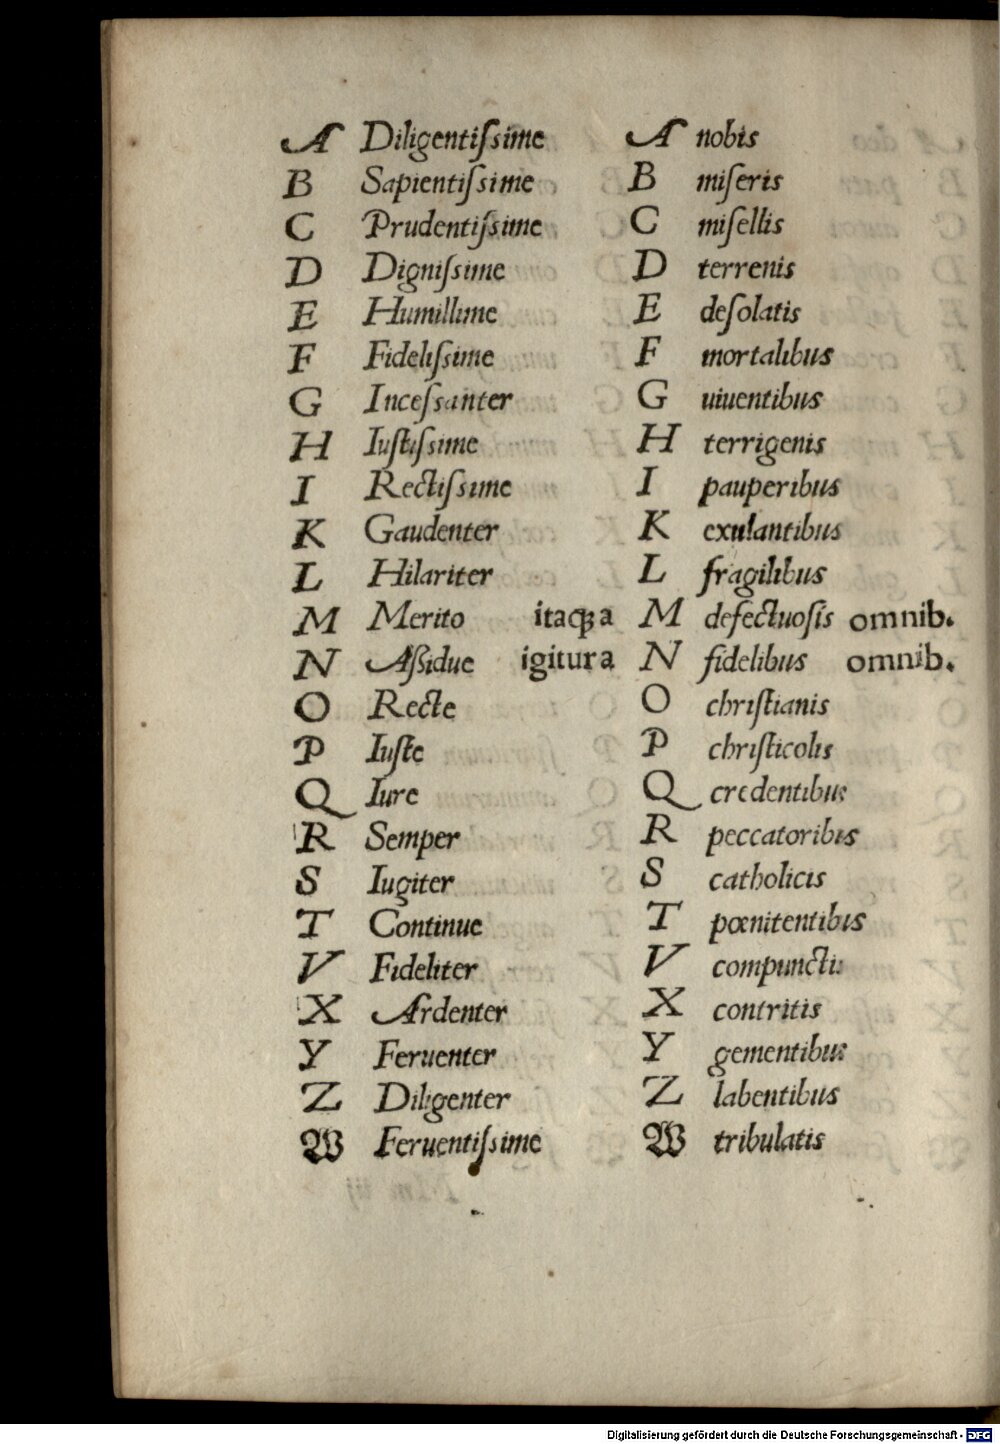 A Diligentiſsime A nobis
B Sapientiſsime B miſeris
C Prudentiſsime C miſellis
D Digniſsime D terrenis
E Humillime E deſolatis
F Fideliſsime F mortalibus
G Inceſsanter G uiuentibus
H Iuſtiſsime H terrigenis
I Rectiſsime I pauperibus
K Gaudenter K exulantibus
L Hilariter L fragilibus
M Merito itaqꝫ a M defectuoſis omnib.
N Aſsidue igitur a N fidelibus omnib.
O Recte O chriſtianis
P Iuſte P chriſticolis
Q Iure Q credentibus
R Semper R peccatoribus
S Iugiter S catholicis
T Continue T pœnitentibus
V Fideliter V compunctis
X Ardenter X contritis
Y Feruenter Y gementibus
Z Diligenter Z labentibus
W Feruentiſsime W tribulatis
Digitalisierung gefördert durch die Deutsche Forschungsgemeinschaft - DFG